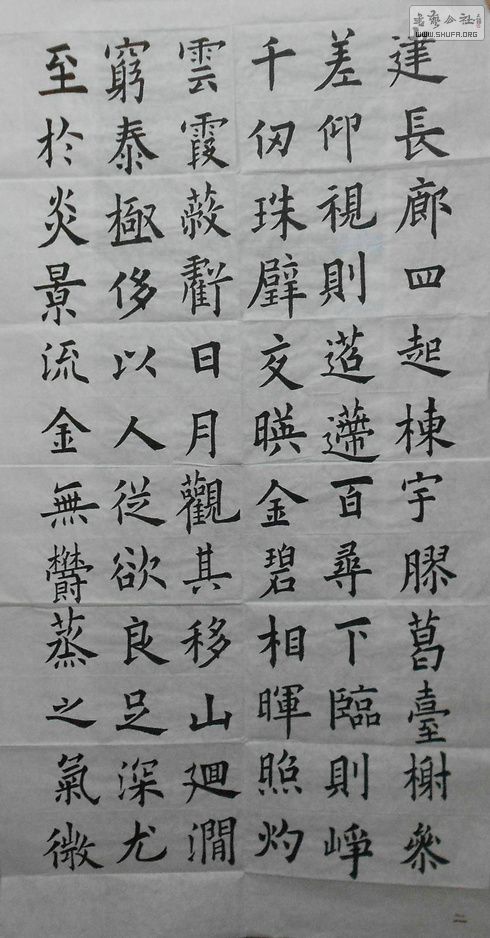 建長廊四起棟宇膠葛臺榭參
差仰視則迢遰百尋下臨則崢
千仞珠璧交暎金碧相暉照灼
雲霞蔽虧日月觀其移山廻澗
窮泰極侈以人從欲良足深尤
至於炎景流金無鬱蒸之氣微
二
書藝公社
WWW.SHUFA.ORG